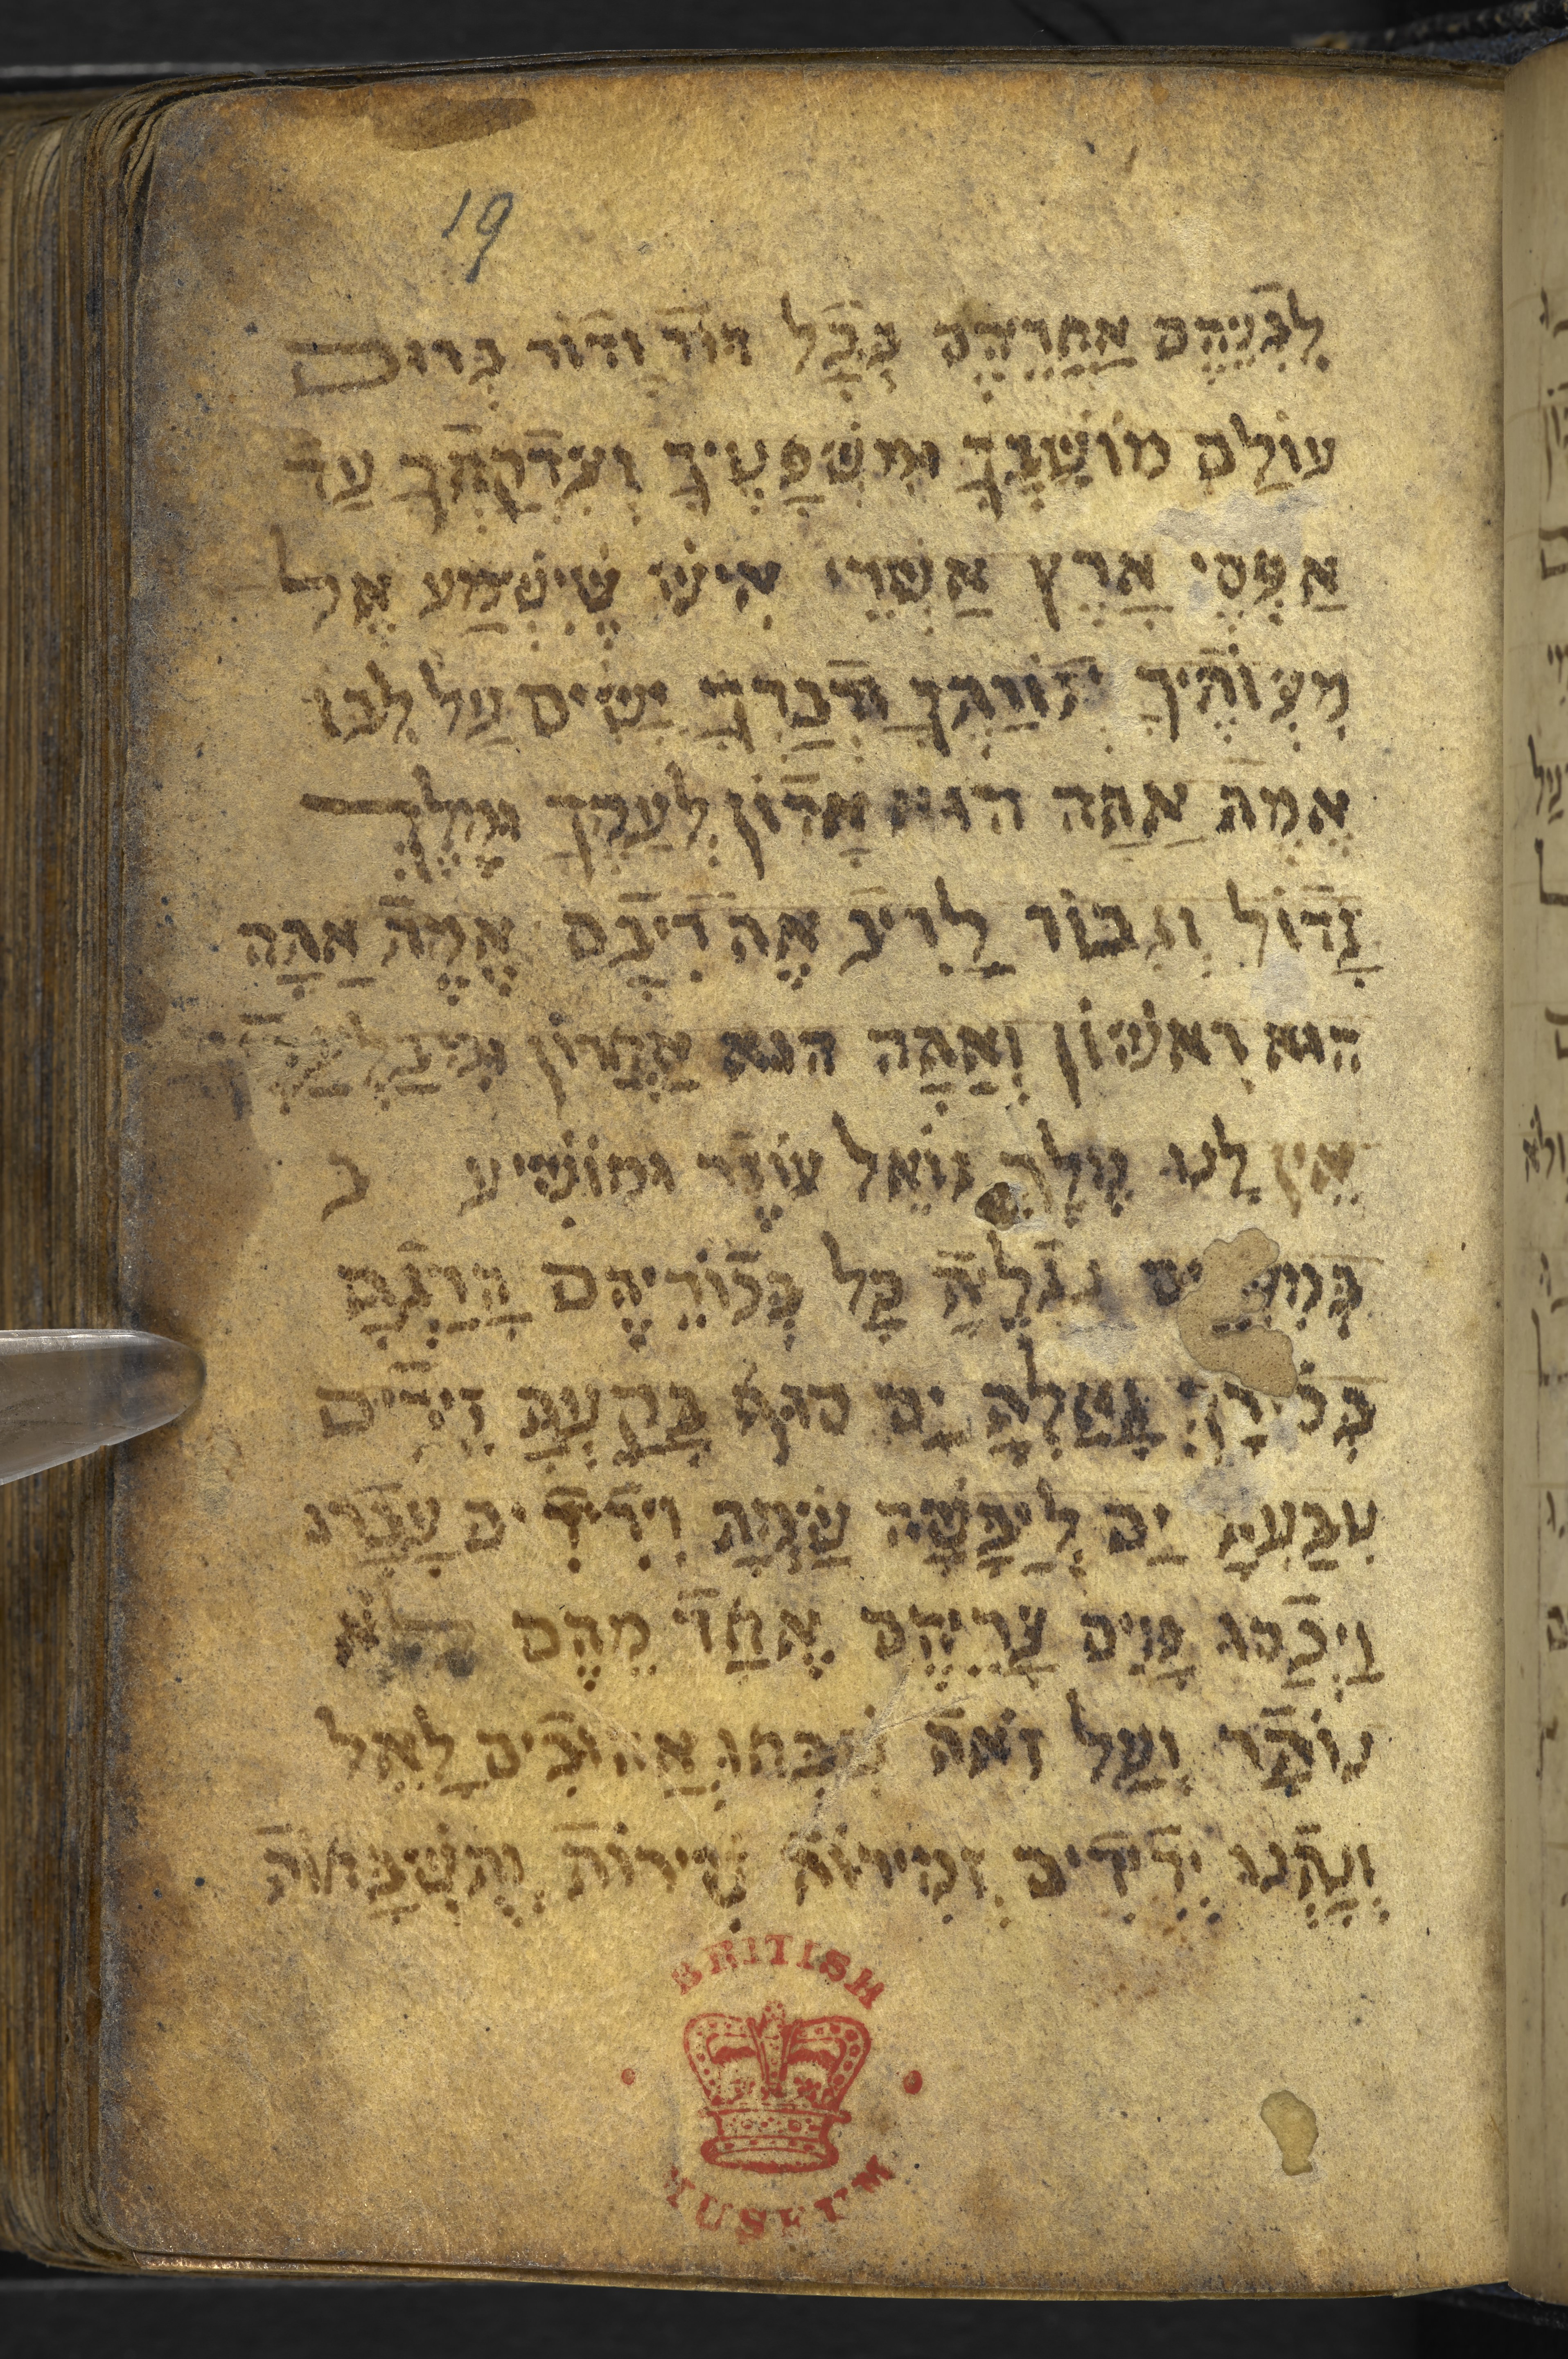 19
לִבְנֵיהֶם אַחֲרֵיהֶם בְּכָל דּוֹר וָדוֹר בְּרוּם
עוֹלָם מוֹשָׁבֶךָ וּמִשְׁפָּטֶיךָ וְצִדְקָתְךָ עַד
אַפְסֵי אָרֶץ אַשְׁרֵי אִישׁ שֶׁיִּשְׁמַע אֶל
מִצְוֹתֶיךָ תוֹרָתְךָ וּדְבָרְךָ יָשִׂים עַל לִבּוֹ
אֱמֶת אַתָּה הוּא אָדוֹן לְעַמֶּךָ וּמֶלֶךְ
גָּדוֹל וְגִבּוֹר לָרִיב אֶת רִיבָם אֱמֶת אַתָּה
הוּא רִאשׁוֹן וְאַתָּה הוּא אַחֲרוֹן וּמִבַּלְעָדֶיךָ
אֵין לָנוּ מֶלֶךְ גּוֹאֵל עוֹזֵר וּמוֹשִׁיעַ
נִגְלֵיתָ כָּל בְּכוֹרֵיהֶם הָרָגְתָּ
בְּכוֹרְךָ גָּאָלְתָּ יַם סוּף בָּקַעְתָּ זֵידִים
טִבַּעְתָּ יַם לְיַבָּשָׁה שַׂמְתָּ וִידִידִים עָבָרוּ
וַיְכַסּוּ מַיִם צָרֵיהֶם אֶחָד מֵהֶם לֹא
נוֹתָר וְעַל זֹאת שִׁבְּחוּ אֲהוּבִים לָאֵל
וְנָתְנוּ יְדִידִים זְמִירוֹת שִׁירוֹת וְתִשְׁבָּחוֹת
BRITISH
MUSEUM